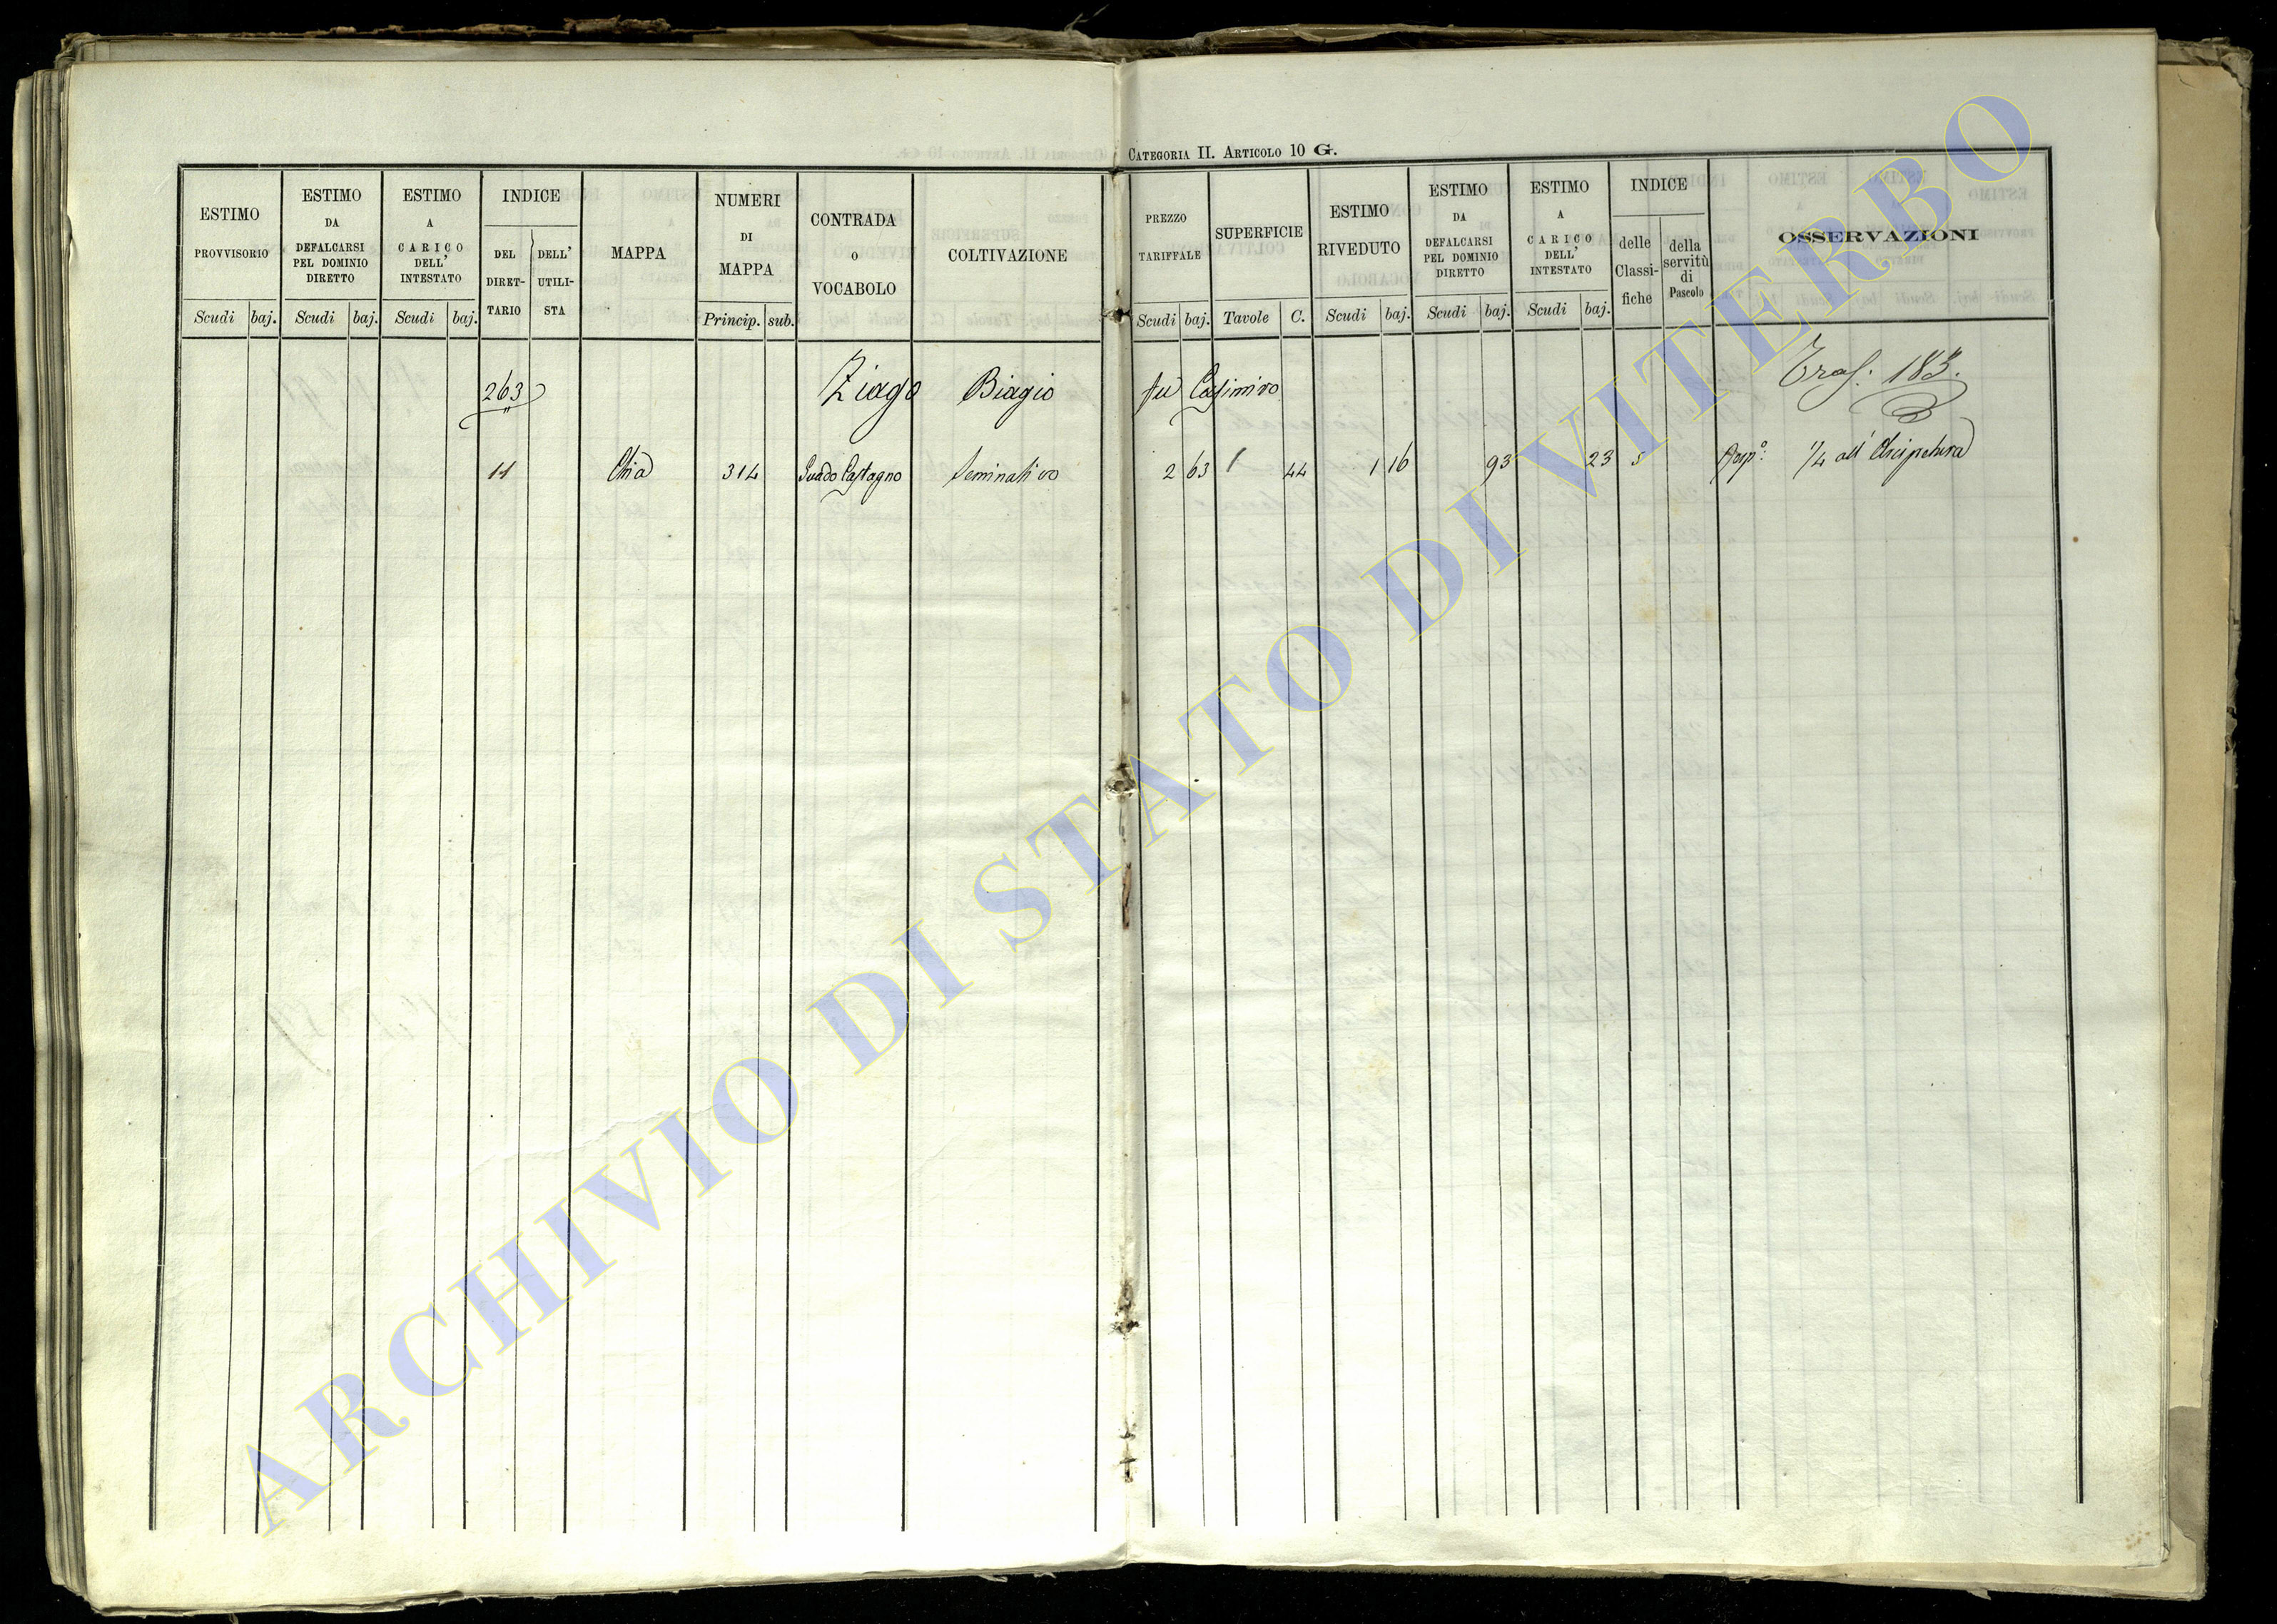 CATEGORIA II. ARTICOLO 10 G.
ESTIMO PROVVISORIO
ESTIMO DA DEFALCARSI PEL DOMINIO DIRETTO
ESTIMO A CARICO DELL' INTESTATO
INDICE
DEL DIRET-TARIO
DELL' UTILI-STA
MAPPA
NUMERI DI MAPPA
CONTRADA O VOCABOLO
COLTIVAZIONE
PREZZO TARIFFALE
SUPERFICIE
ESTIMO RIVEDUTO
ESTIMO DA DEFALCARSI PEL DOMINIO DIRETTO
ESTIMO A CARICO DELL' INTESTATO
INDICE
delle Classi-fiche
della servitù di Pascolo
OSSERVAZIONI
Scudi baj. Scudi baj. Scudi baj. Princip. sub. Scudi baj. Tavole C. Scudi baj. Scudi baj. Scudi baj.
263 Ziago Biagio fu Casimiro Tras. 183.
11 Chia 314 Guado Castagno Seminativo 2 63 1 44 1 16 93 23 5 Risp.º 1/4 all'
ARCHIVIO DI STATO DI VITERBO